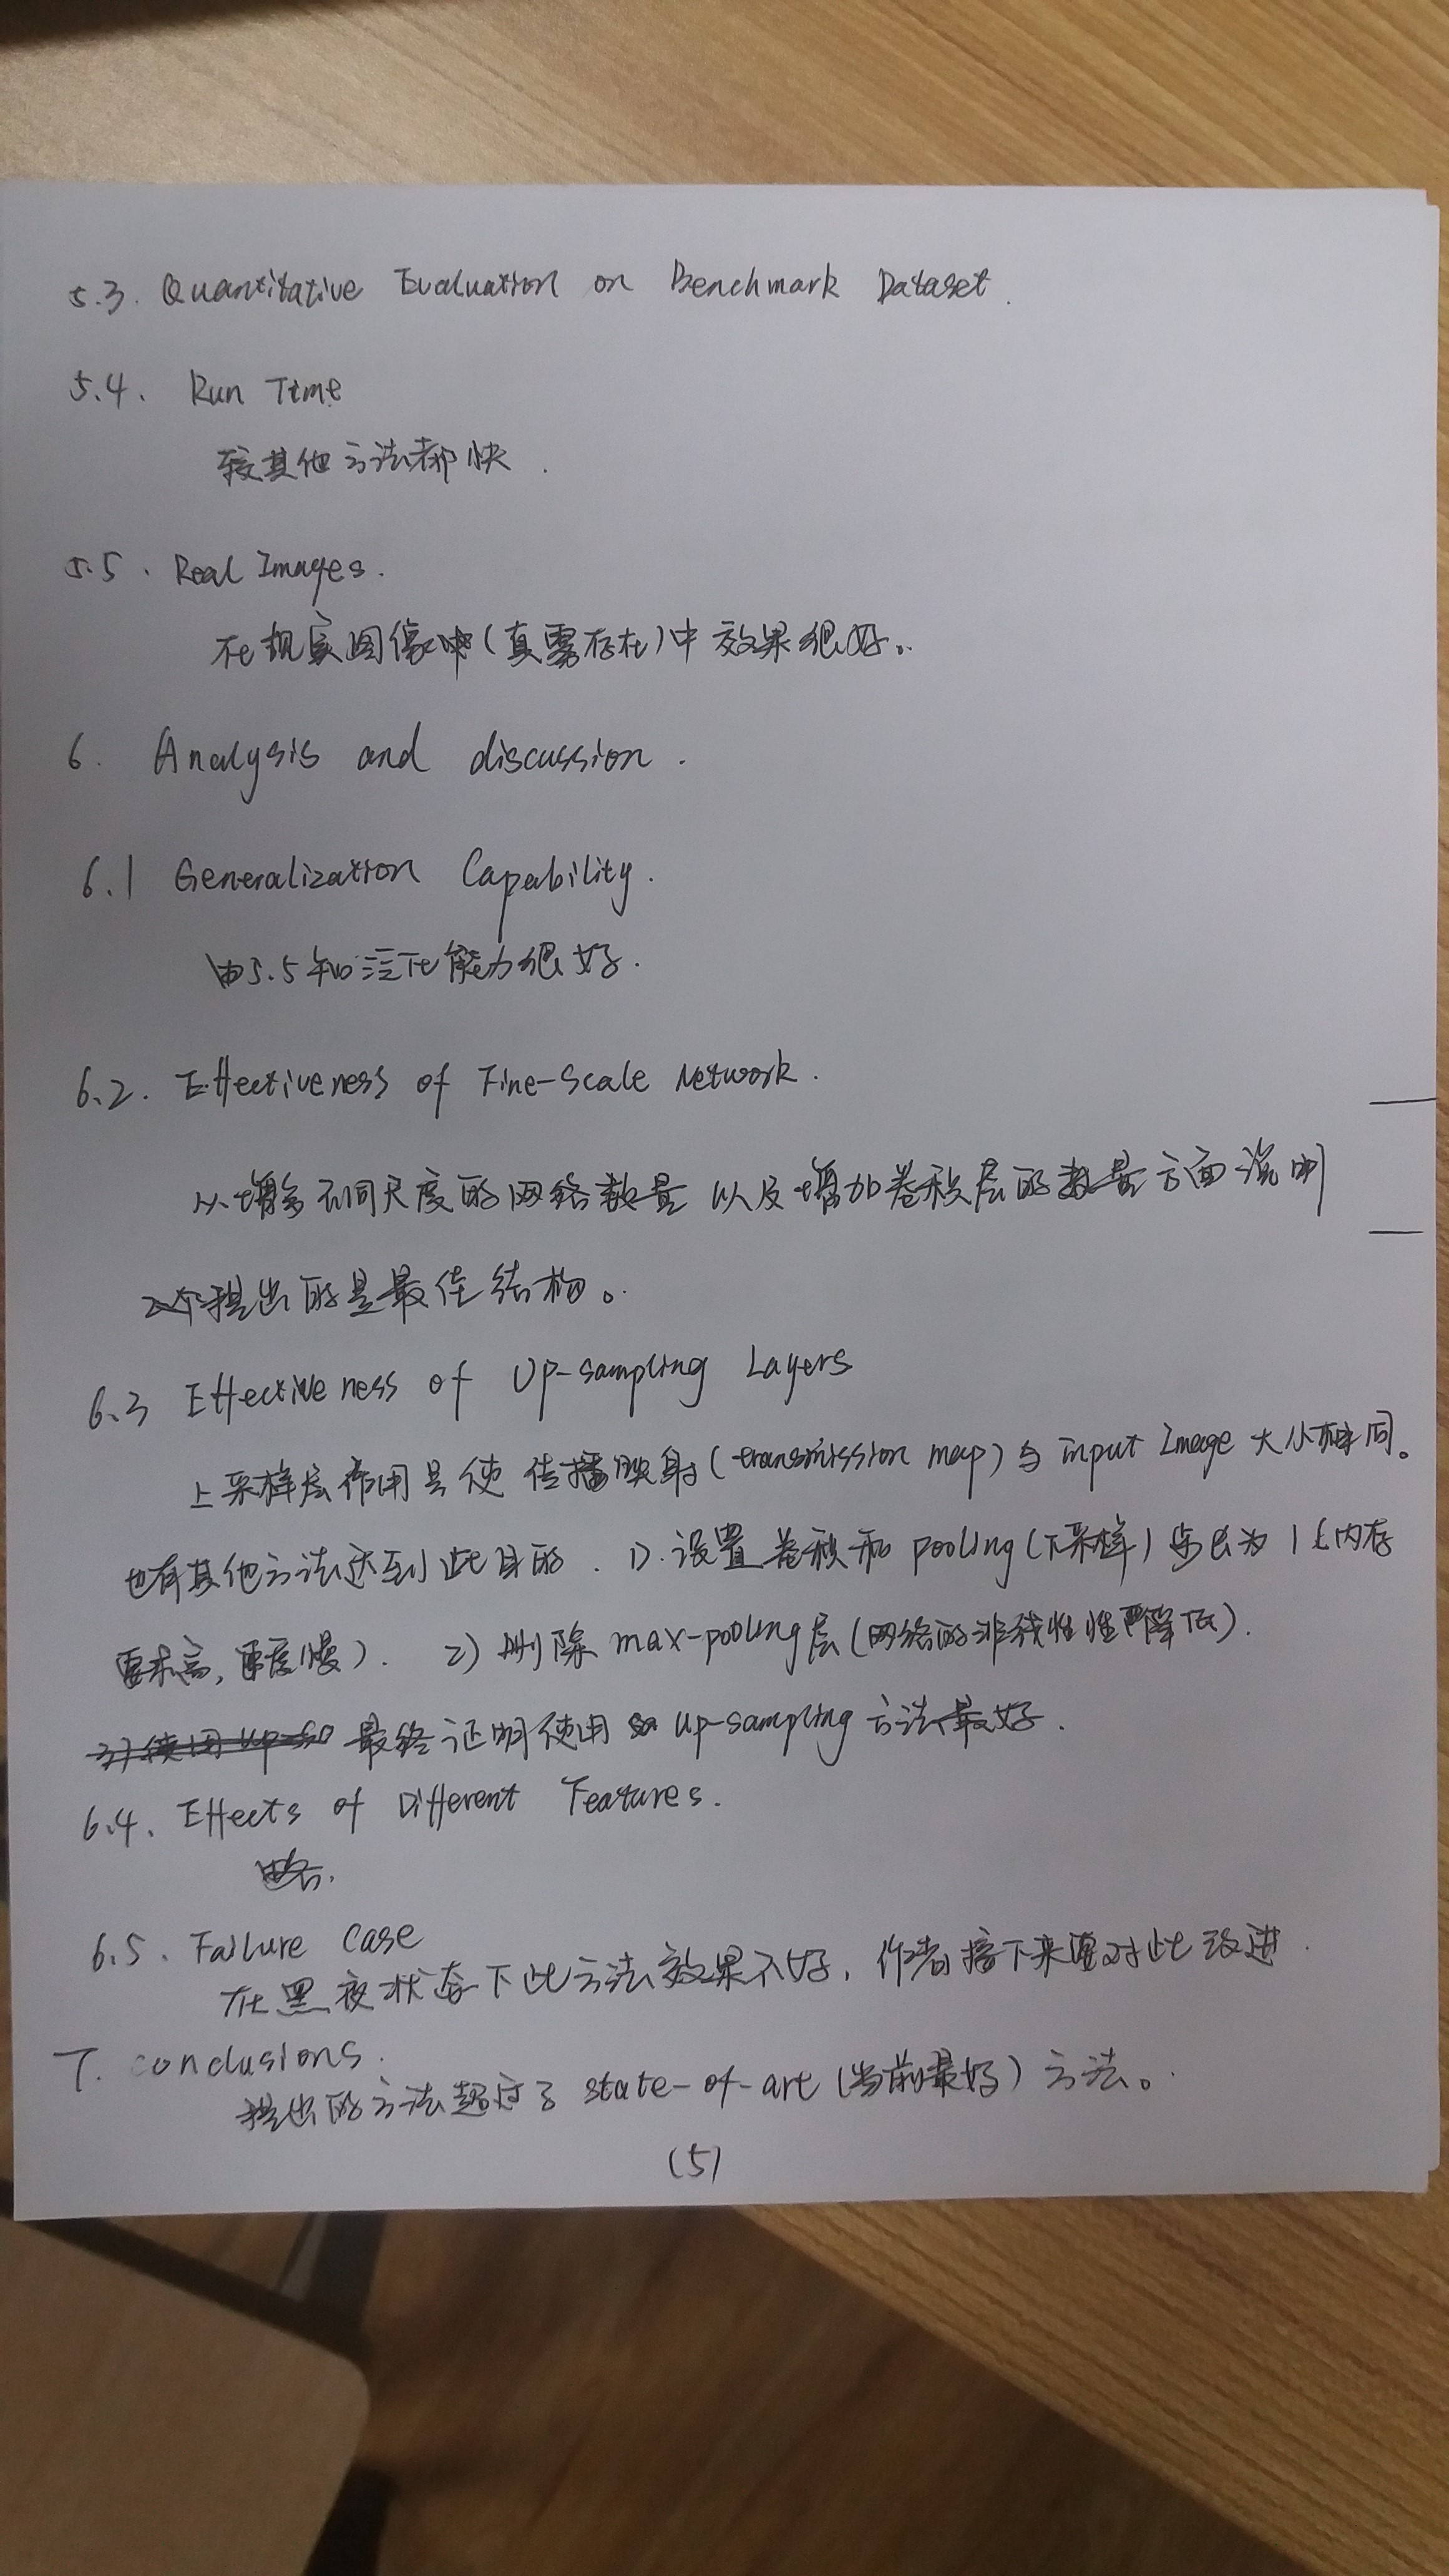 5.3. Quantitative Evaluation on Benchmark Dataset.
5.4. Run Time
较其他方法都快.
5.5. Real Images.
在现实图像中(真雾存在)中效果很好。
6. Analysis and discussion.
6.1 Generalization Capability.
由5.5知泛化能力很好.
6.2. Effectiveness of Fine-Scale Network.
从增多不同尺度的网络数量以及增加卷积层的数量方面说明
提出的是最佳结构。
6.3 Effectiveness of Up-sampling Layers
上采样层作用是使传播映射(transmission map)与input Image大小相同。
也有其他方法达到此目的. 1). 设置卷积和pooling(下采样)步长为1(内存
要求高,速度慢). 2) 删除max-pooling层(网络的非线性性降低).
最终证明使用up-sampling方法最好.
6.4. Effects of Different Features.
略.
6.5. Failure Case
在黑夜状态下此方法效果不好, 作者接下来要对此改进.
7. conclusions.
提出的方法超过了state-of-art(当前最好)方法。
(5)